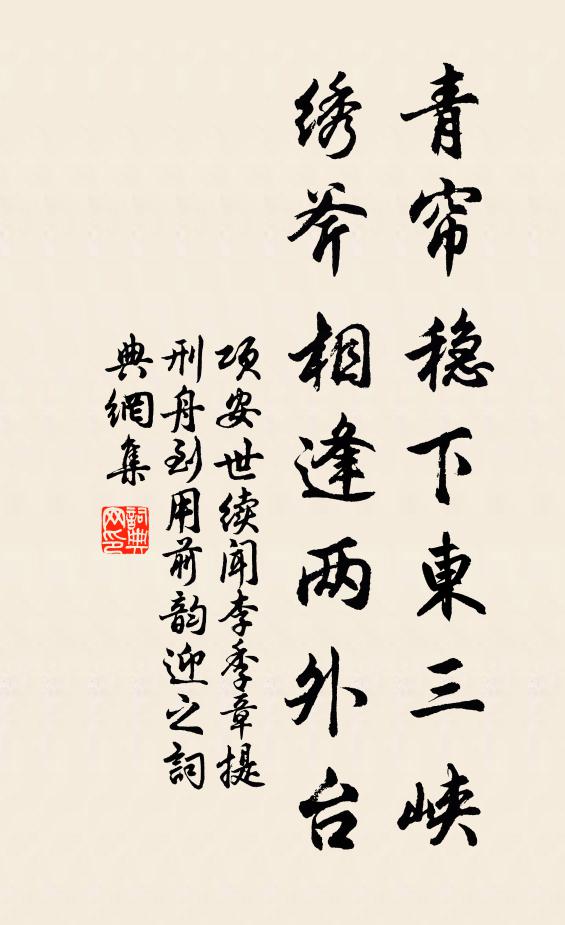 青帘穏下東三峡
绣斧相逢两外台
项安世续闻李季章提
刑舟到用前韵迎之詞
典網集
詞典网印